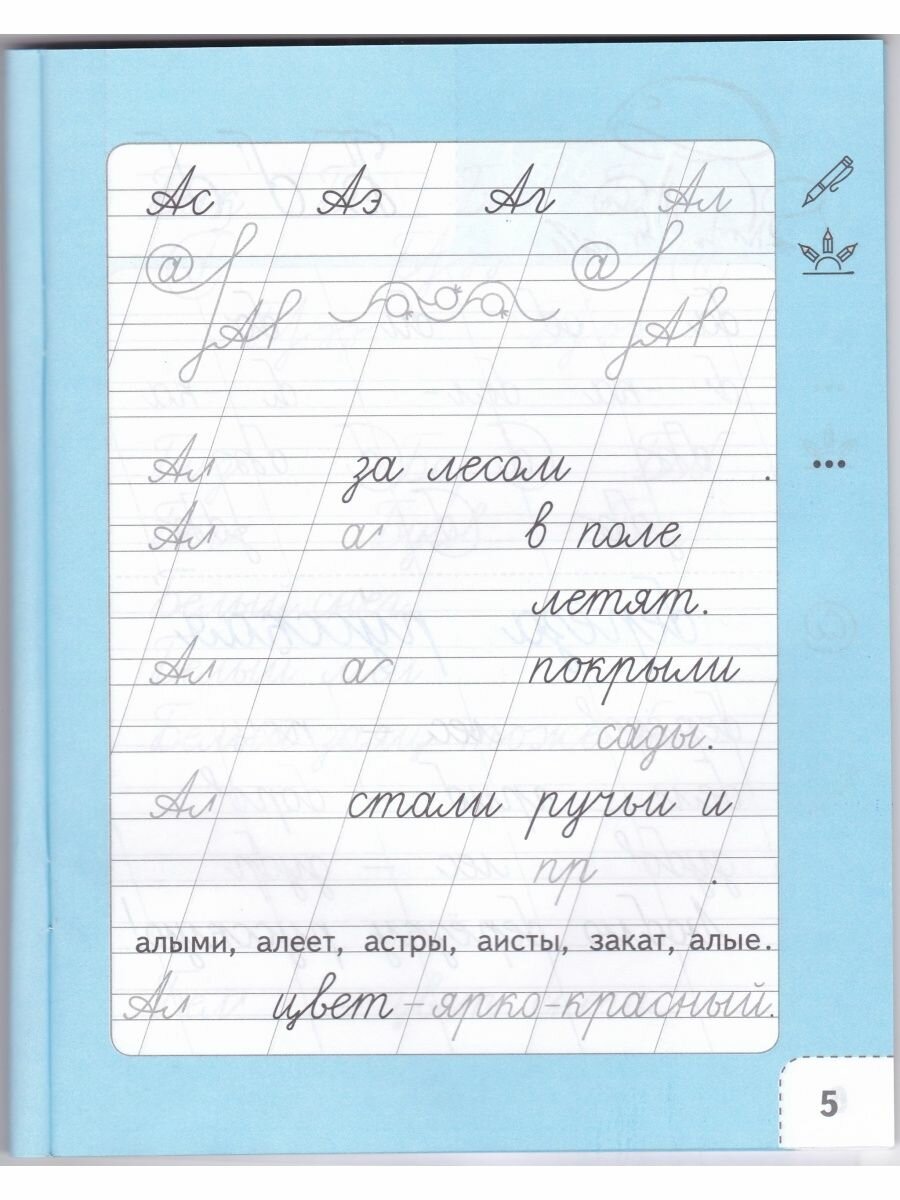 Ас Аэ Аг Ал
а а
Ав Ав
Ал за лесом .
Ал а в поле
летят.
Ал ас покрыли
сады.
Ал стали ручьи и
пр .
алыми, алеет, астры, аисты, закат, алые.
Ал цвет – ярко-красный.
5